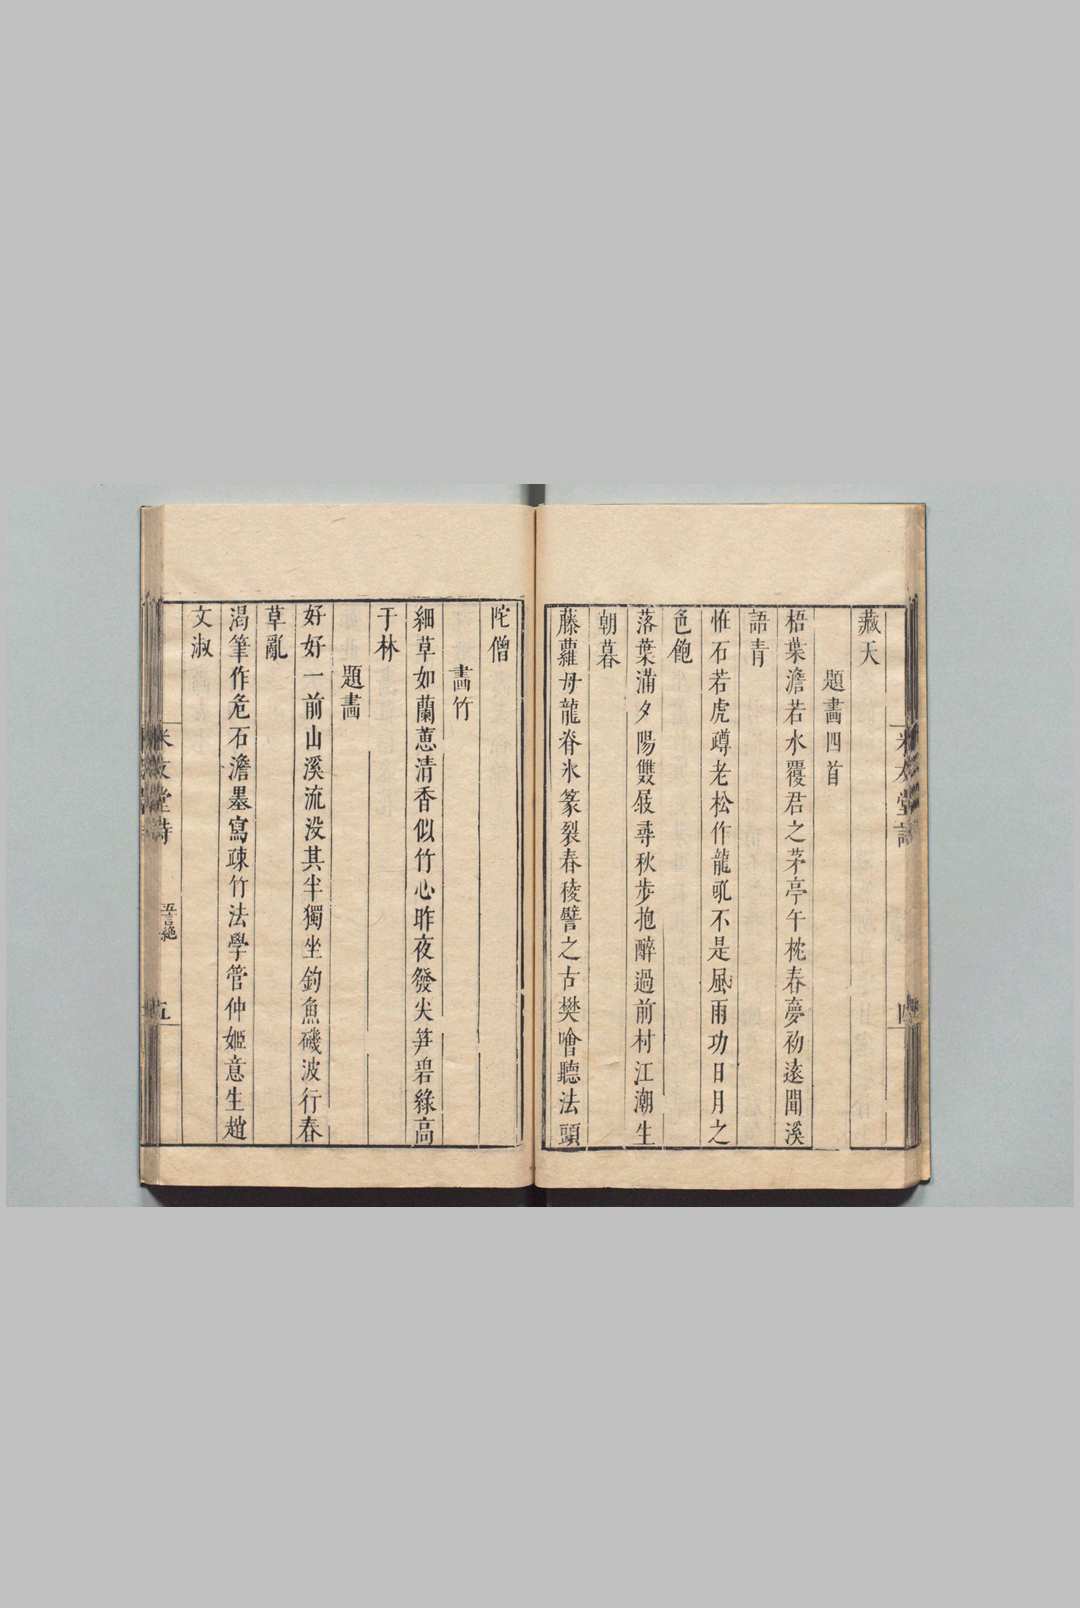 藏天
題畵四首
梧葉澹若水覆君之茅亭午枕春夢初遠聞溪
語青
恠石若虎蹲老松作龍吼不是風雨功日月之
色飽
落葉滿夕陽雙屐尋秋步抱醉過前村江潮生
朝暮
藤蘿母龍脊氷篆裂春稜譬之古樊噲聽法頭
陀僧
畵竹
細草如蘭蕙清香似竹心昨夜發尖笋碧綠高
于林
題畵
好好一前山溪流没其半獨坐釣魚磯波行春
草亂
渴筆作危石澹墨寫疎竹法學管仲姬意生趙
文淑
米友堂詩
五言絶
五